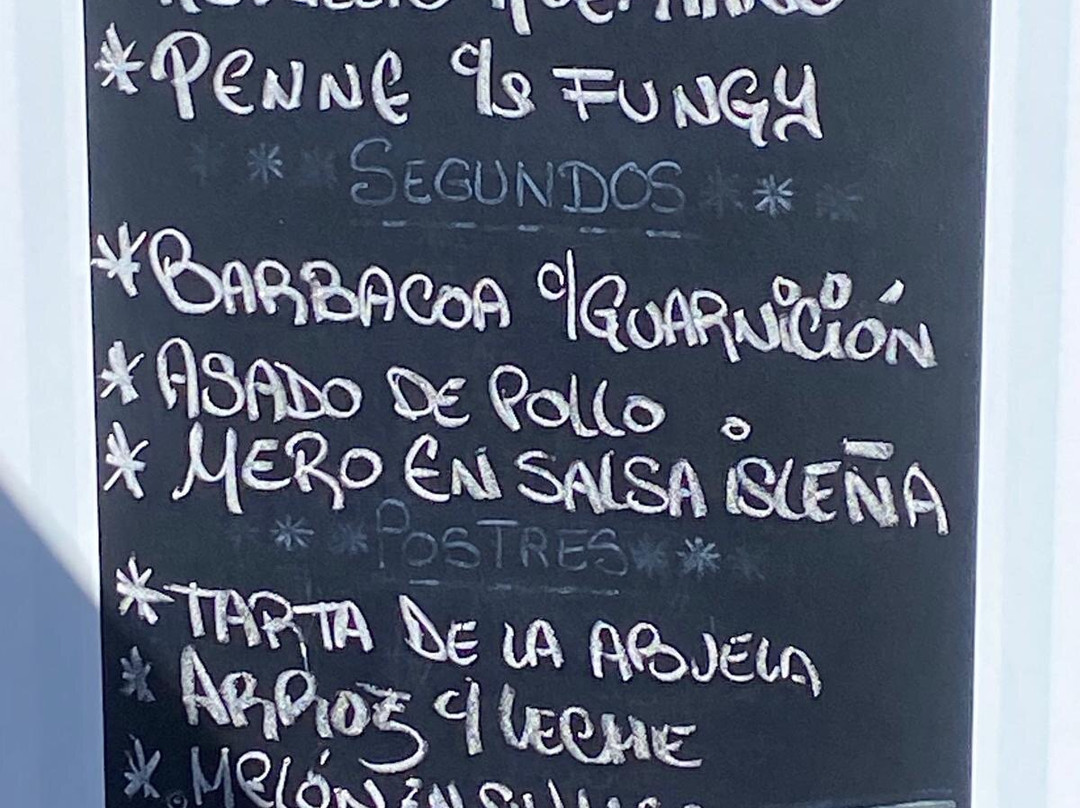 * PENNE c/s FUNGY
* * * SEGUNDOS * * *
* BARBACOA c/GUARNICIÓN
* ASADO DE POLLO
* MERO EN SALSA ISLEÑA
* * POSTRES * * *
* TARTA DE LA ABUELA
* ARROZ c/ LECHE
* MELÓN EN